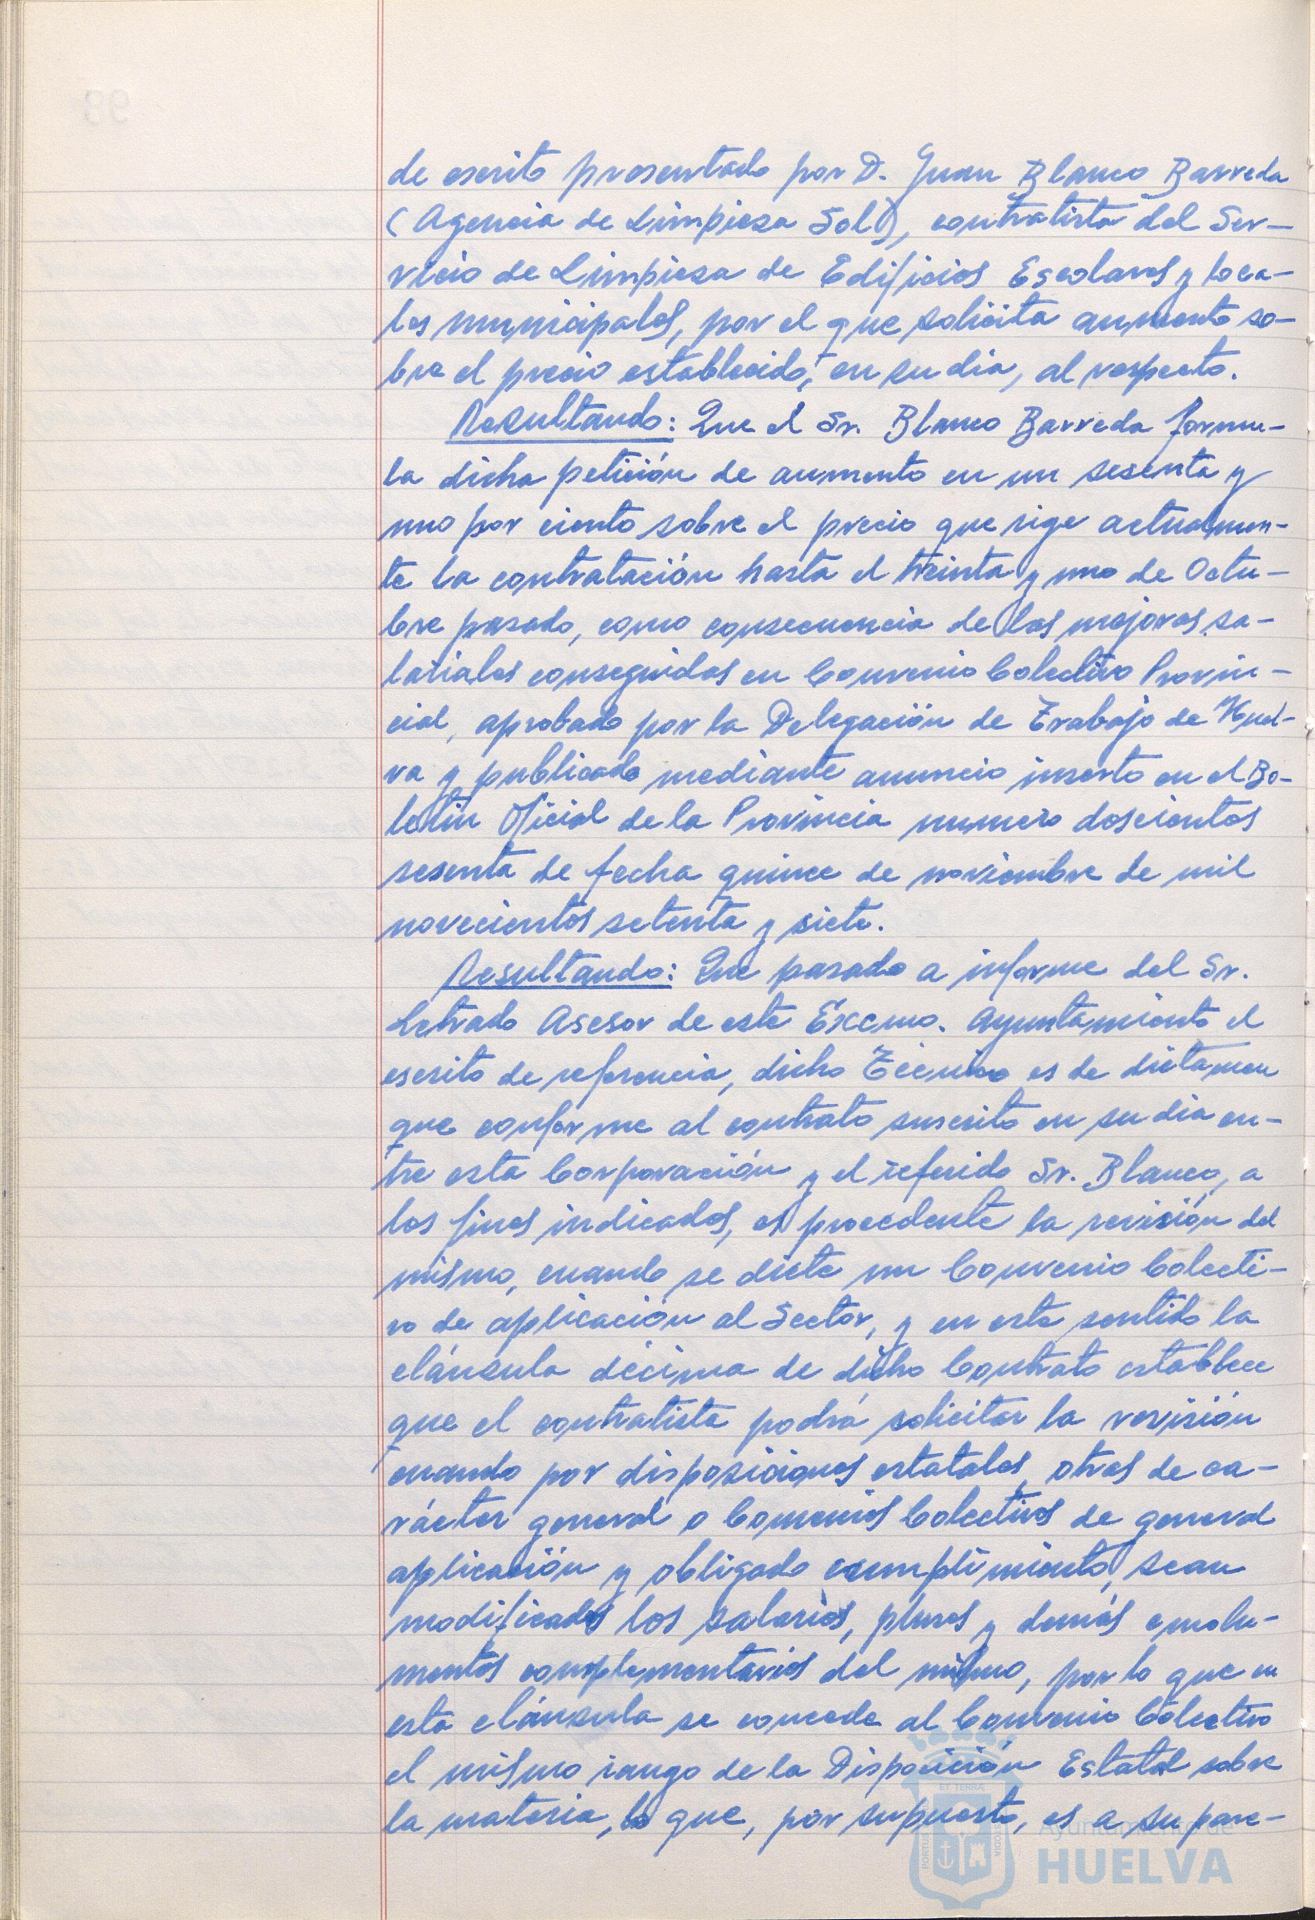 de escrito presentado por D. Juan Blanco Barreda
(Agencia de Limpieza Sol), contratista del Ser-
vicio de Limpieza de Edificios Escolares y loca-
les municipales, por el que solicita aumento so-
bre el precio establecido, en su dia, al respecto.
Resultando: Que el Sr. Blanco Barreda formu-
la dicha petición de aumento en un sesenta y
uno por ciento sobre el precio que rige actualmen-
te la contratación hasta el treinta y uno de Octu-
bre pasado, como consecuencia de las mejoras sa-
lariales conseguidas en Convenio Colectivo Provin-
cial, aprobado por la Delegación de Trabajo de Huel-
va y publicado mediante anuncio inserto en el Bo-
letin Oficial de la Provincia numero doscientos
sesenta de fecha quince de noviembre de mil
novecientos setenta y siete.
Resultando: Que pasado a informe del Sr.
Letrado Asesor de este Excmo. Ayuntamiento el
escrito de referencia, dicho Técnico es de dictamen
que conforme al contrato suscrito en su dia en-
tre esta Corporación y el referido Sr. Blanco, a
los fines indicados, es procedente la revisión del
mismo, cuando se dicte un Convenio Colecti-
vo de aplicación al Sector, y en este sentido la
cláusula décima de dicho Contrato establece
que el contratista podrá solicitar la revisión
cuando por disposiciones estatales, otras de ca-
rácter general o Convenios Colectivos de general
aplicación y obligado cumplimiento, sean
modificados los salarios, pluses y demás emolu-
mentos complementarios del mismo, por lo que en
esta cláusula se concede al Convenio Colectivo
el mismo rango de la Disposición Estatal sobre
la materia, lo que, por supuesto, es a su pare-
Ayuntamiento de
HUELVA